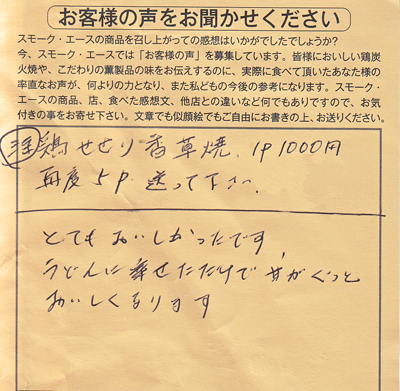 お客様の声をお聞かせください
スモーク・エースの商品を召し上がっての感想はいかがでしたでしょうか?
今、スモーク・エースでは「お客様の声」を募集しています。皆様においしい鶏炭
火焼や、こだわりの薫製品の味をお伝えするのに、実際に食べて頂いたあなた様の
率直なお声が、何よりの力となり、また私どもの今後の参考になります。スモーク・
エースの商品、店、食べた感想文、他店との違いなど何でもありですので、お気
付きの事をお寄せ下さい。文章でも似顔絵でもご自由にお書きの上、お送りください。
鶏せせり香草焼、1P 1000円
再度 5P 送って下さい。
とてもおいしかったです
うどんに乗せただけで、がぐっと
おいしくなります